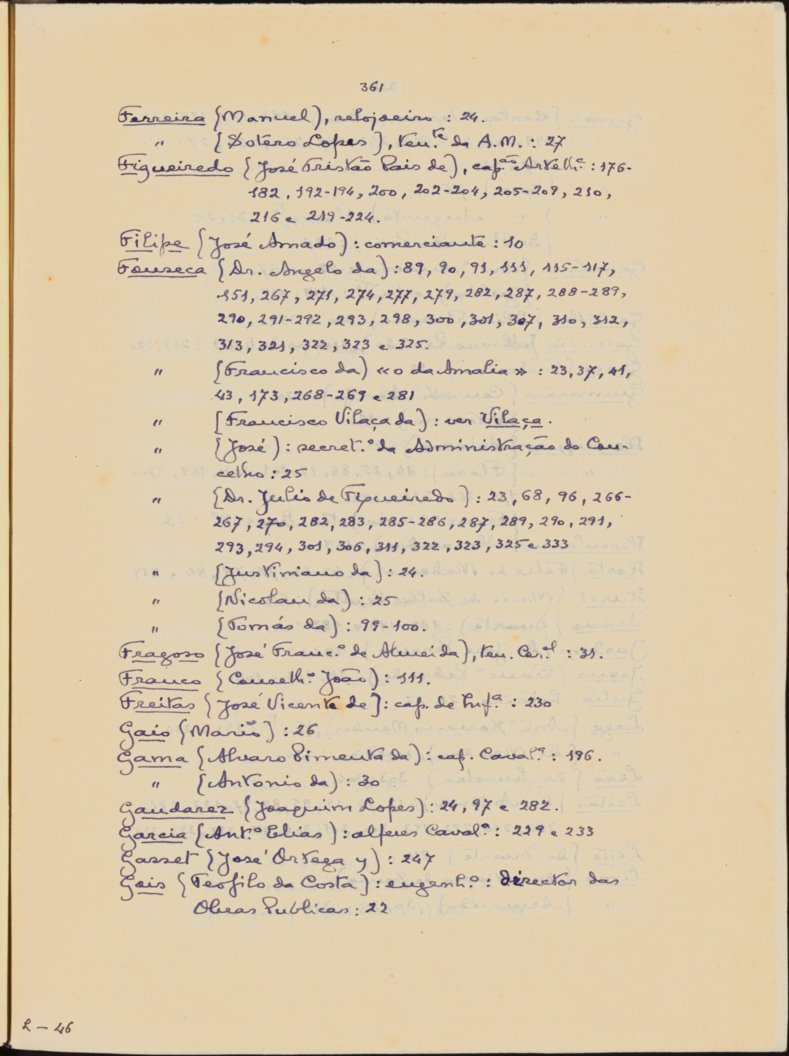 361
Ferreira (Manuel), relojoeiro : 24.
" (Sotero Lopes), ten.te da A.M. : 27
Figueiredo (José Tristão Pais de), cap.ão Artelh.ª : 176-
182, 192-194, 200, 202-204, 205-209, 210,
216 e 219-224.
Filipe (José Amado) : comerciante : 10
Fonseca (Dr. Angelo da) : 89, 90, 91, 111, 115-117,
151, 267, 271, 274, 277, 279, 282, 287, 288-289,
290, 291-292, 293, 298, 300, 301, 307, 310, 312,
313, 321, 322, 323 e 325.
" (Francisco da) «o da Amalia» : 23, 37, 41,
43, 173, 268-269 e 281
" (Francisco Vilaça da) : ver Vilaça.
" (José) : secret.º da Administração do Con-
celho : 25
" (Dr. Julio de Figueiredo) : 23, 68, 96, 266-
267, 270, 282, 283, 285-286, 287, 289, 290, 291,
293, 294, 301, 306, 311, 322, 323, 325 e 333
" (Justiniano da) : 24.
" (Nicolau da) : 25
" (Tomás da) : 99-100.
Fragoso (José Franc.º de Almeida), ten. Cor.el : 31.
Franco (Conselh.º João) : 111.
Freitas (José Vicente de) : cap. de Inf.ª : 230
Gaio (Mario) : 26
Gama (Alvaro Pimenta da) : cap. Caval.ª : 196.
" (Antonio da) : 30
Gaudarez (Joaquim Lopes) : 24, 97 e 282.
Garcia (Ant.º Elias) : alferes Caval.ª : 229 e 233
Gasset (José Ortega y) : 247
Gois (Teofilo da Costa) : engenh.º : Director das
Obras Publicas : 22
2 - 46